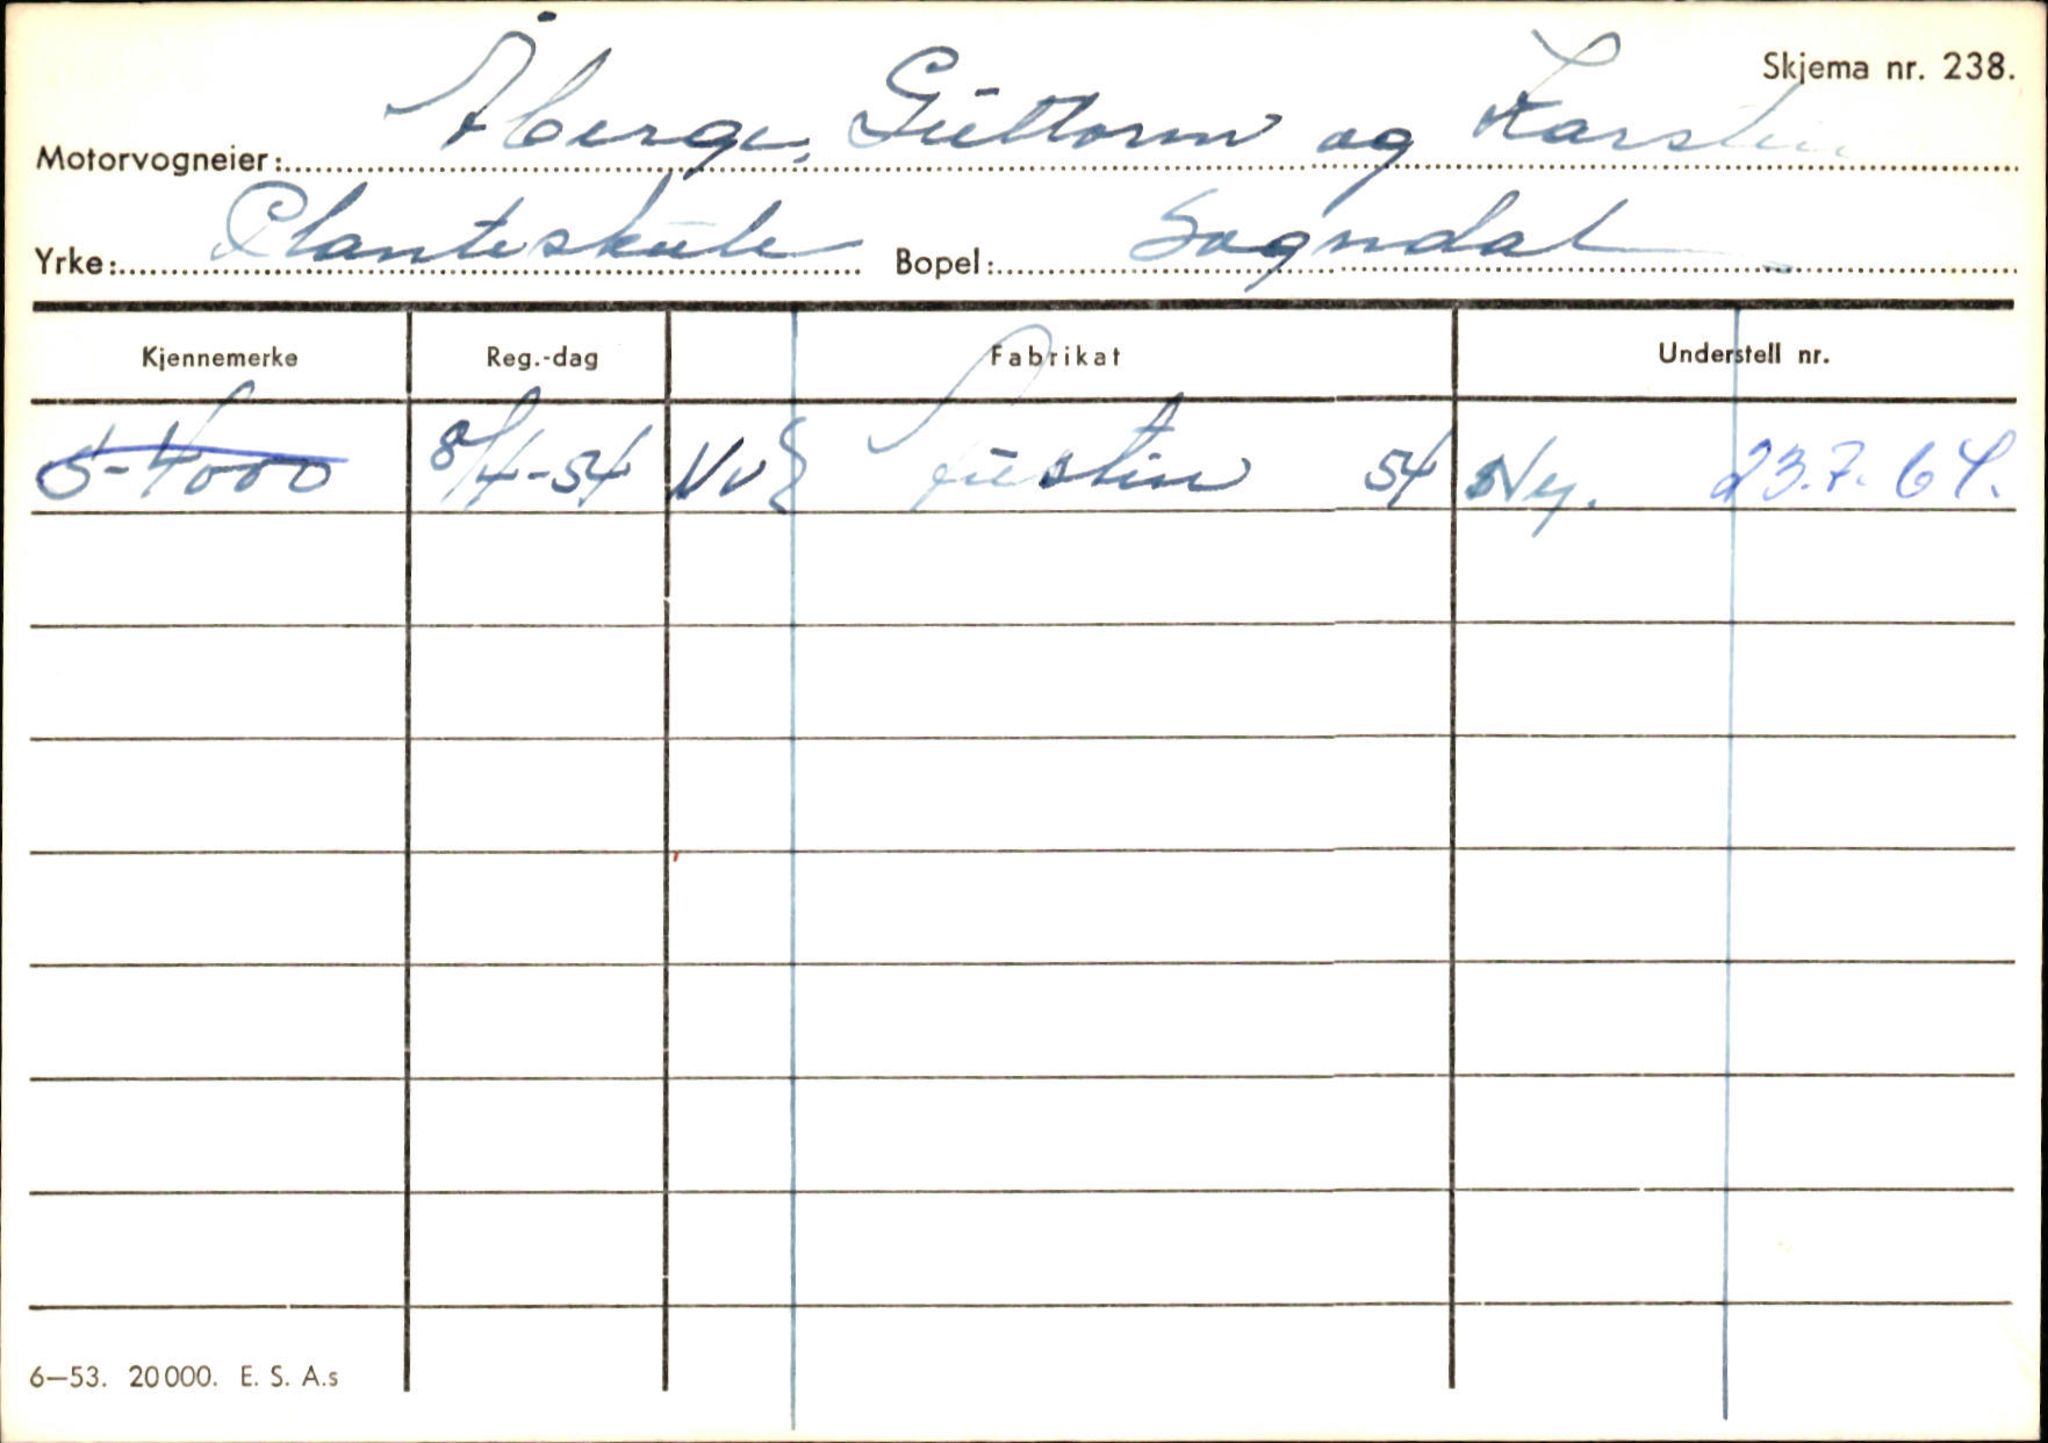 Skjema nr. 238.
Motorvogneier: Åberge, Guttorm og Karsten
Yrke: Planteskule Bopel: Sogndal
Kjennemerke Reg.-dag Fabrikat Understell nr.
S-4000 8/4-54 Vv Austin 54 Ny. 23.7.64.
6—53. 20000. E. S. A.s